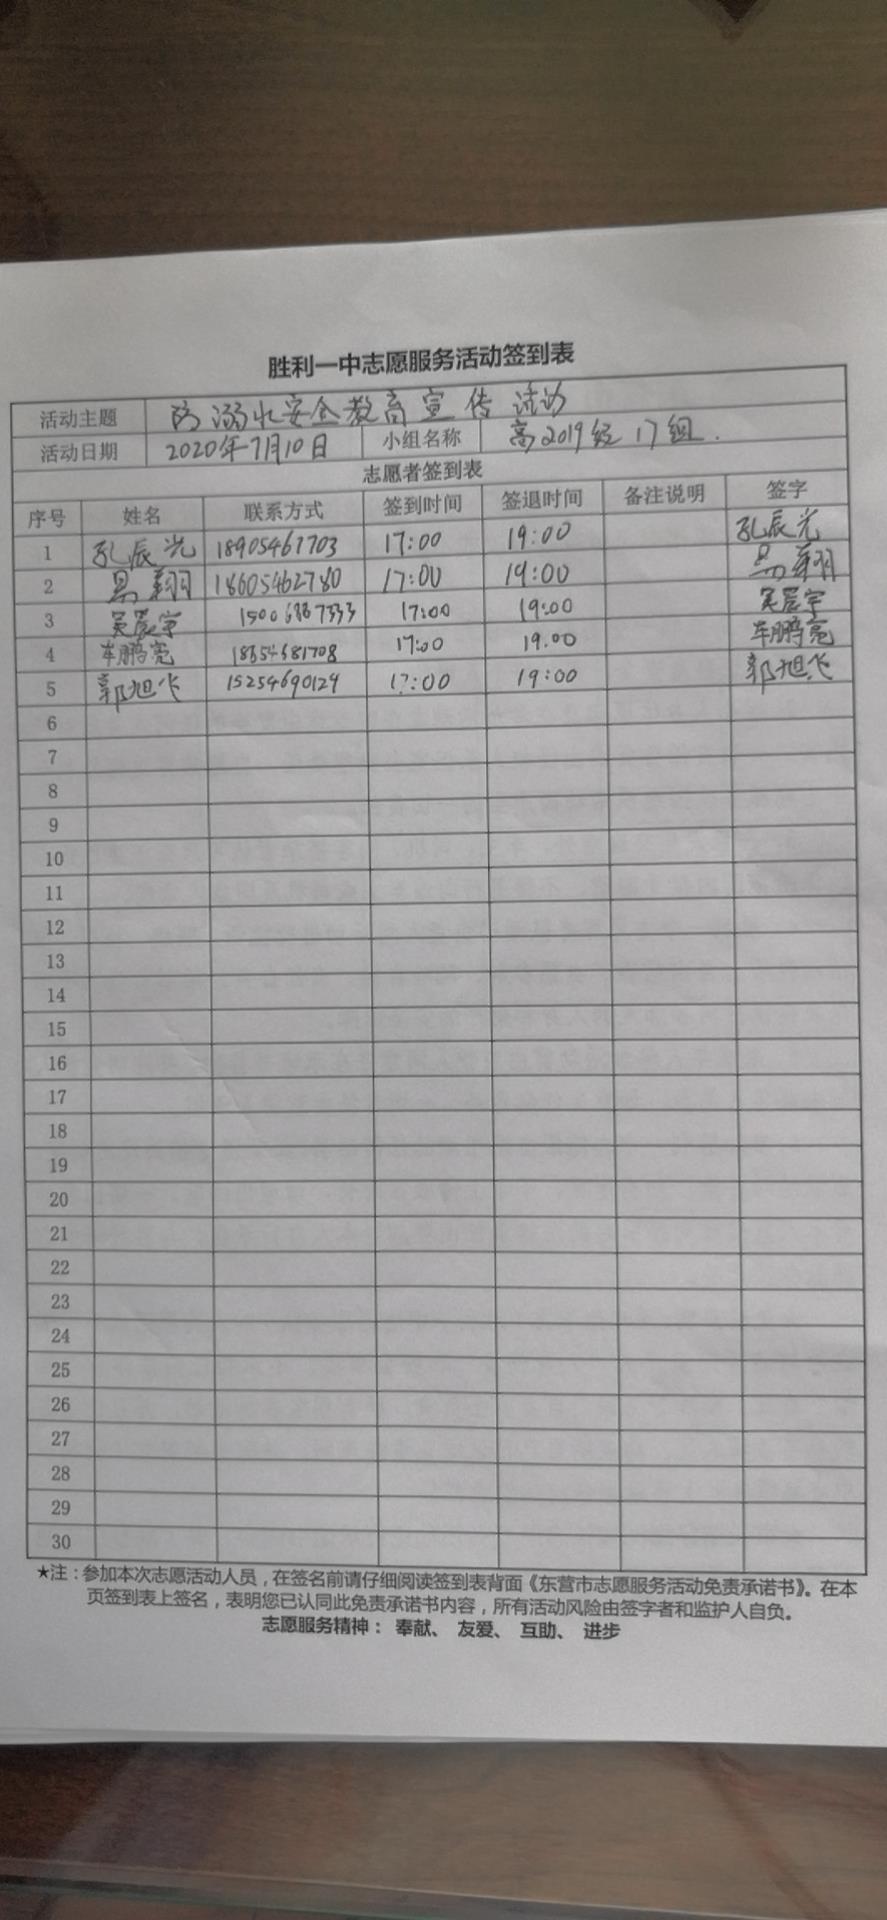 胜利一中志愿服务活动签到表
活动主题 防溺水安全教育宣传活动
活动日期 2020年7月10日 小组名称 高2019级17组.
志愿者签到表
序号 姓名 联系方式 签到时间 签退时间 备注说明 签字
1 孔辰光 18905461703 17:00 19:00 孔辰光
2 翔 18605462780 17:00 19:00 翔
3 吴晨宇 17:00 19:00 吴晨宇
4 车鹏亮 18654681708 17:00 19:00 车鹏亮
5 郭旭飞 15254690124 17:00 19:00 郭旭飞
6
7
8
9
10
11
12
13
14
15
16
17
18
19
20
21
22
23
24
25
26
27
28
29
30
★注：参加本次志愿活动人员，在签名前请仔细阅读签到表背面《东营市志愿服务活动免责承诺书》。在本
页签到表上签名，表明您已认同此免责承诺书内容，所有活动风险由签字者和监护人自负。
志愿服务精神： 奉献、 友爱、 互助、 进步